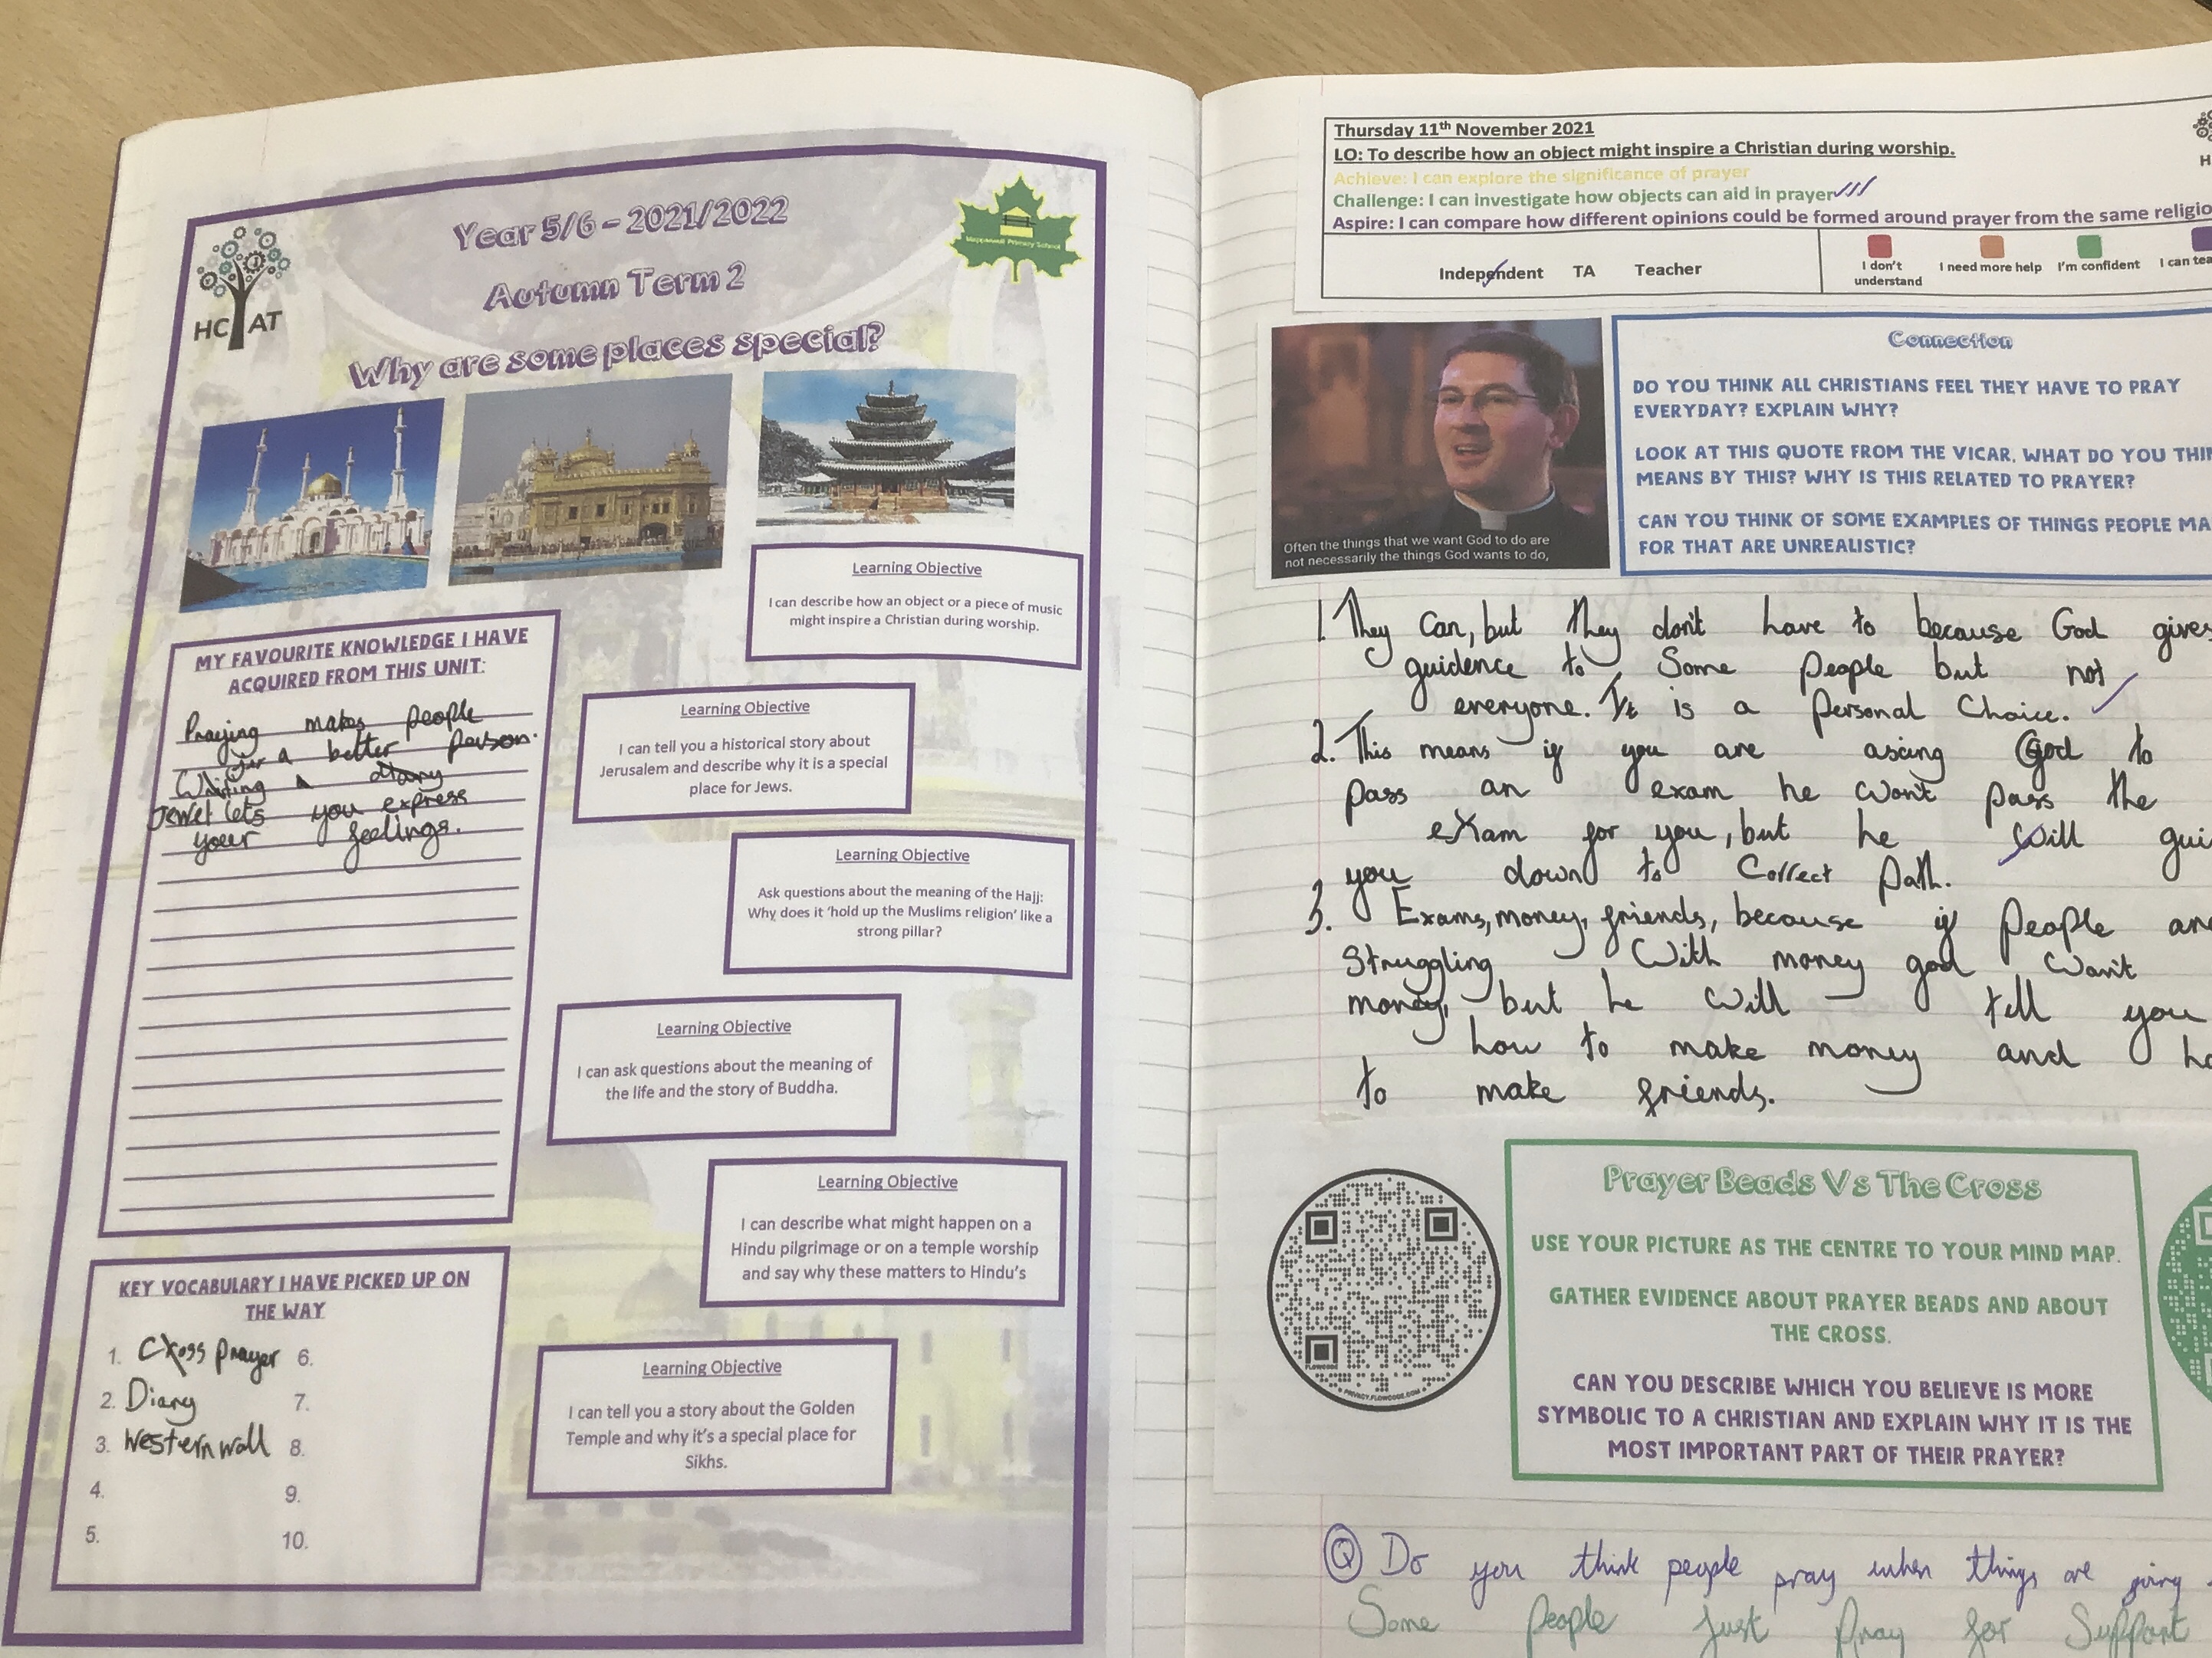 Year 5/6 – 2021/2022
Autumn Term 2
Why are some places special?
HCAT
Mapplewell Primary School
MY FAVOURITE KNOWLEDGE I HAVE
ACQUIRED FROM THIS UNIT:
Praying makes people
a better person.
Writing a diary
lets you express
your feelings.
KEY VOCABULARY I HAVE PICKED UP ON
THE WAY
1. Cross prayer 6.
2. Diary 7.
3. Western wall 8.
4. 9.
5. 10.
Learning Objective
I can describe how an object or a piece of music
might inspire a Christian during worship.
Learning Objective
I can tell you a historical story about
Jerusalem and describe why it is a special
place for Jews.
Learning Objective
Ask questions about the meaning of the Hajj:
Why does it 'hold up the Muslims religion' like a
strong pillar?
Learning Objective
I can ask questions about the meaning of
the life and the story of Buddha.
Learning Objective
I can describe what might happen on a
Hindu pilgrimage or on a temple worship
and say why these matters to Hindu's
Learning Objective
I can tell you a story about the Golden
Temple and why it's a special place for
Sikhs.
Thursday 11th November 2021
LO: To describe how an object might inspire a Christian during worship.
Achieve: I can explore the significance of prayer
Challenge: I can investigate how objects can aid in prayer
Aspire: I can compare how different opinions could be formed around prayer from the same religio
Independent TA Teacher
I don't
understand
I need more help
I'm confident
I can tea
H
Often the things that we want God to do are
not necessarily the things God wants to do,
Connection
DO YOU THINK ALL CHRISTIANS FEEL THEY HAVE TO PRAY
EVERYDAY? EXPLAIN WHY?
LOOK AT THIS QUOTE FROM THE VICAR. WHAT DO YOU THIN
MEANS BY THIS? WHY IS THIS RELATED TO PRAYER?
CAN YOU THINK OF SOME EXAMPLES OF THINGS PEOPLE MA
FOR THAT ARE UNREALISTIC?
1. They can, but they don't have to because God gives
guidence to some people but not
everyone. It is a personal choice.
2. This means if you are ascing God to
pass an exam he won't pass the
exam for you, but he will gui
you down to correct path.
3. Exams, money, friends, because if people are
struggling with money god won't
money, but he will tell you
how to make money and ho
to make friends.
FLOWCODE
PRIVACY.FLOWCODE.COM
Prayer Beads Vs The Cross
USE YOUR PICTURE AS THE CENTRE TO YOUR MIND MAP.
GATHER EVIDENCE ABOUT PRAYER BEADS AND ABOUT
THE CROSS.
CAN YOU DESCRIBE WHICH YOU BELIEVE IS MORE
SYMBOLIC TO A CHRISTIAN AND EXPLAIN WHY IT IS THE
MOST IMPORTANT PART OF THEIR PRAYER?
Q Do you think people pray when things are going
Some people just pray for support